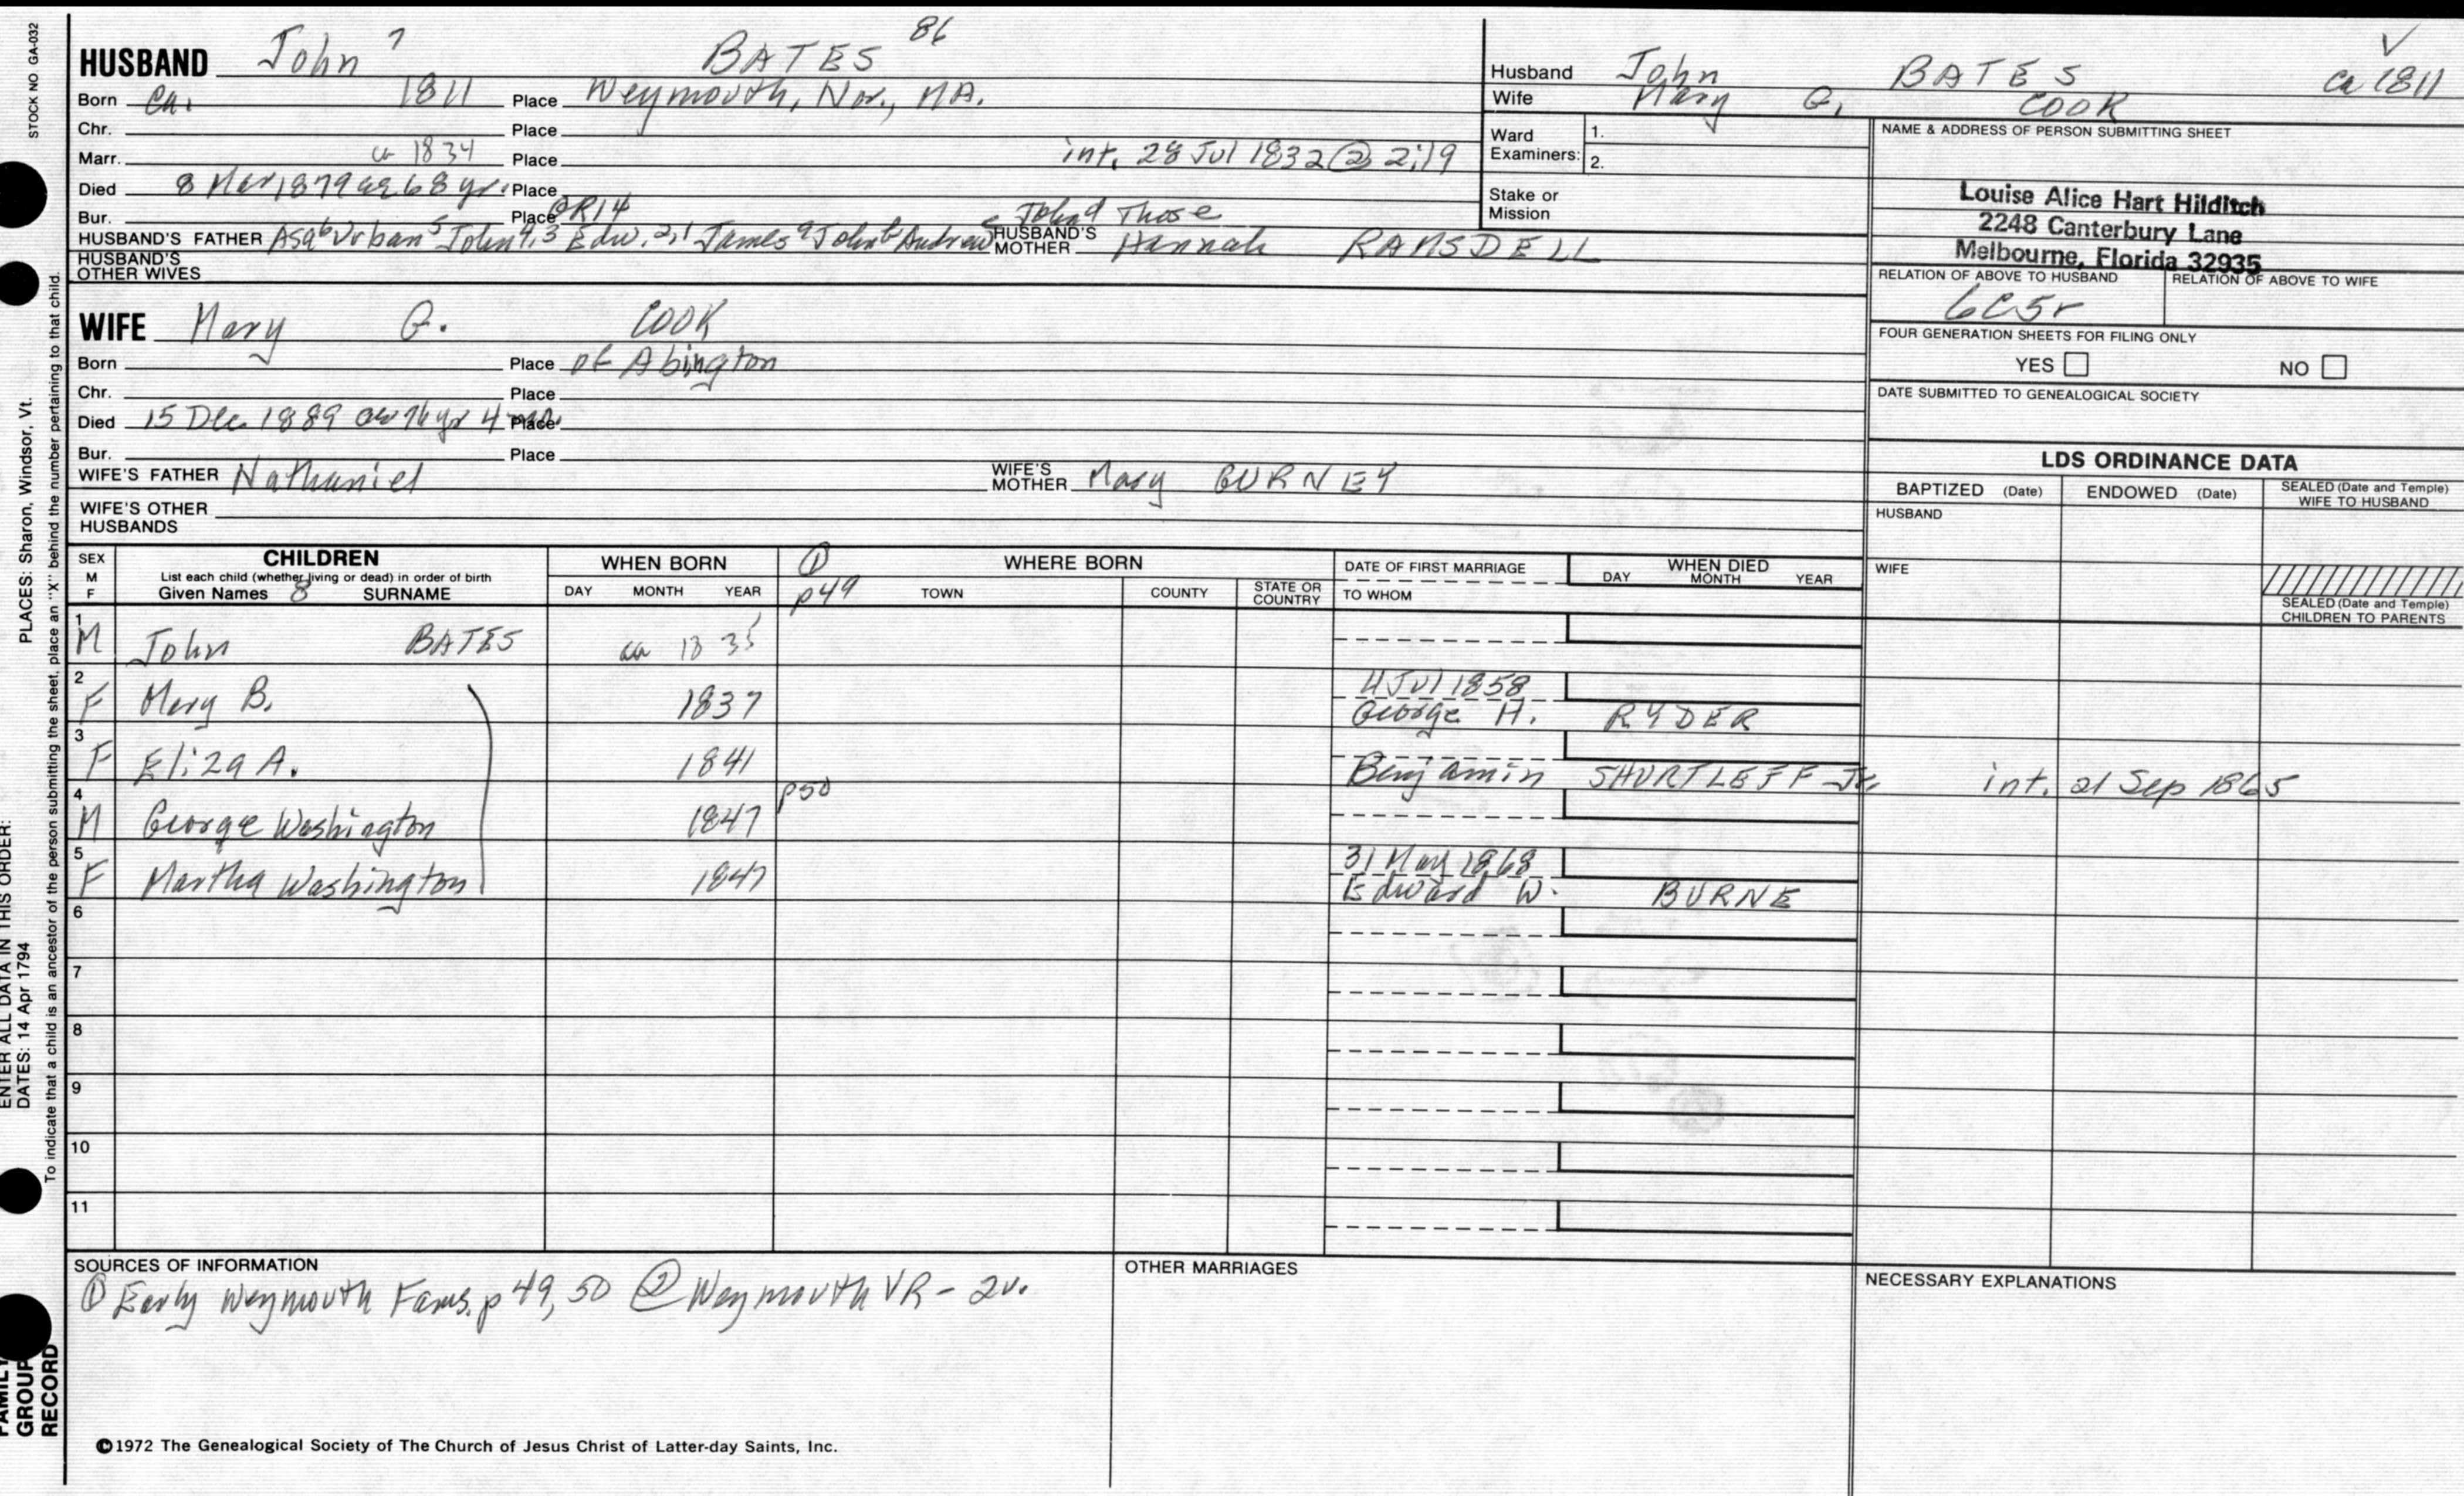 STOCK NO GA-032
HUSBAND John 7 BATES 86
Born Ca. 1811 Place Weymouth, Nor., MA.
Chr. Place
Marr. ca 1834 Place int. 28 Jul 1832 ② 2:19
Died 8 Mar 1879 ae 68 yr. Place
Bur. Place GR14
HUSBAND'S FATHER Asa 6 Urban 5 John 4,3 Edw. 2,1 James a John b Andrew c John d Those HUSBAND'S MOTHER Hannah RAMSDELL
HUSBAND'S OTHER WIVES
WIFE Mary G. COOK
Born Place of Abington
Chr. Place
Died 15 Dec. 1889 ae 76 yr 4 mo. Place
Bur. Place
WIFE'S FATHER Nathaniel WIFE'S MOTHER Mary GURNEY
WIFE'S OTHER HUSBANDS
Husband John BATES ca 1811
Wife Mary G. COOK
Ward Examiners: 1.
2.
Stake or Mission
NAME & ADDRESS OF PERSON SUBMITTING SHEET
Louise Alice Hart Hilditch
2248 Canterbury Lane
Melbourne, Florida 32935
RELATION OF ABOVE TO HUSBAND RELATION OF ABOVE TO WIFE
6C5r
FOUR GENERATION SHEETS FOR FILING ONLY
YES NO
DATE SUBMITTED TO GENEALOGICAL SOCIETY
LDS ORDINANCE DATA
BAPTIZED (Date) ENDOWED (Date) SEALED (Date and Temple) WIFE TO HUSBAND
HUSBAND
WIFE
SEALED (Date and Temple) CHILDREN TO PARENTS
SEX M F CHILDREN WHEN BORN ① WHERE BORN DATE OF FIRST MARRIAGE WHEN DIED
List each child (whether living or dead) in order of birth
Given Names 8 SURNAME DAY MONTH YEAR p49 TOWN COUNTY STATE OR COUNTRY TO WHOM DAY MONTH YEAR
1 M John BATES ca 1835
2 F Mary B. 1837 4 Jul 1858
George H. RYDER
3 F Eliza A. 1841 Benjamin SHURTLEFF Jr. int. 21 Sep 1865
4 M George Washington 1847 p50
5 F Martha Washington 1847 31 May 1868
Edward W. BURNE
6
7
8
9
10
11
SOURCES OF INFORMATION
① Early Weymouth Fams. p 49, 50 ② Weymouth VR - 2v.
OTHER MARRIAGES
NECESSARY EXPLANATIONS
©1972 The Genealogical Society of The Church of Jesus Christ of Latter-day Saints, Inc.
ENTER ALL DATA IN THIS ORDER:
DATES: 14 Apr 1794 PLACES: Sharon, Windsor, Vt.
To indicate that a child is an ancestor of the person submitting the sheet, place an "X" behind the number pertaining to that child.
FAMILY
GROUP
RECORD